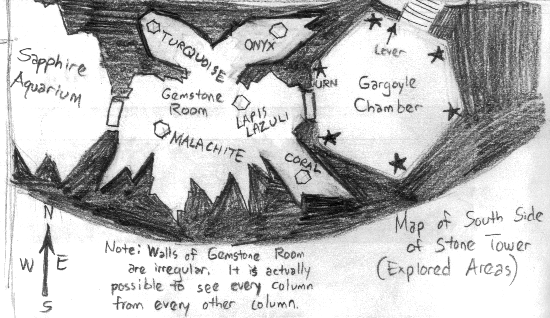 Sapphire
Aquarium
TURQUOISE
ONYX
Gemstone
Room
LAPIS
LAZULI
MALACHITE
CORAL
URN
Lever
Gargoyle
Chamber
N
W E
S
Note: Walls of Gemstone Room
are irregular. It is actually
possible to see every column
from every other column.
Map of South Side
of Stone Tower
(Explored Areas)